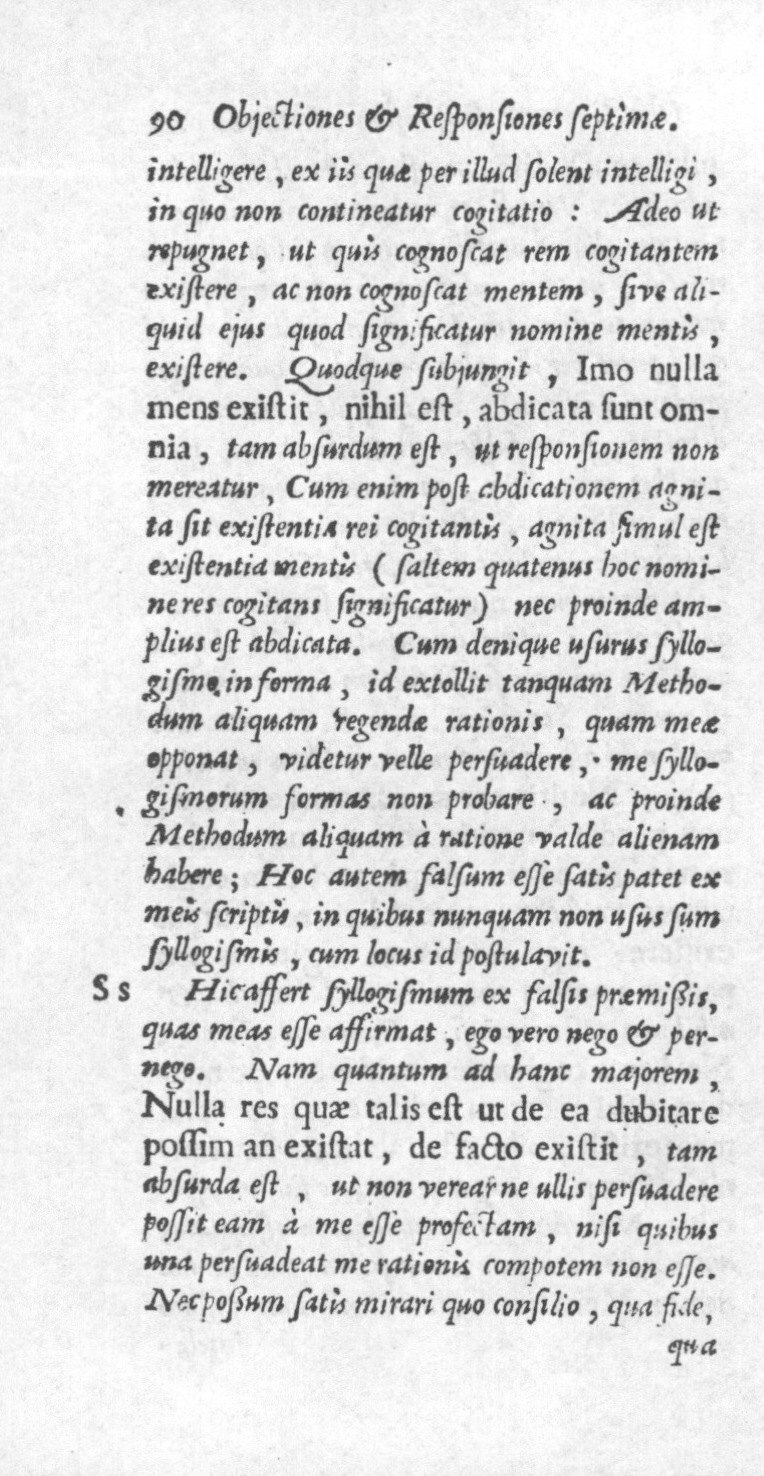 90 Objectiones & Responsiones septimæ.
intelligere, ex iis quæ per illud ſolent intelligi,
in quo non contineatur cogitatio: Adeo ut
repugnet, ut quis cognoſcat rem cogitantem
exiſtere, ac non cognoſcat mentem, ſive ali-
quid ejus quod ſignificatur nomine mentis,
exiſtere. Quodque ſubjungit, Imo nulla
mens exiſtit, nihil eſt, abdicata ſunt om-
nia, tam abſurdum eſt, ut reſponſionem non
mereatur, Cum enim poſt abdicationem agni-
ta ſit exiſtentia rei cogitantis, agnita ſimul eſt
exiſtentia mentis (ſaltem quatenus hoc nomi-
ne res cogitans ſignificatur) nec proinde am-
plius eſt abdicata. Cum denique uſurus ſyllo-
giſmo in forma, id extollit tanquam Metho-
dum aliquam regendæ rationis, quam meæ
opponat, videtur velle perſuadere, me ſyllo-
giſmorum formas non probare, ac proinde
Methodum aliquam à ratione valde alienam
habere; Hoc autem falſum eſſe ſatis patet ex
meis ſcriptis, in quibus nunquam non uſus ſum
ſyllogiſmis, cum locus id poſtulavit.
Ss Hic affert ſyllogiſmum ex falſis præmiſſis,
quas meas eſſe affirmat, ego vero nego & per-
nego. Nam quantum ad hanc majorem,
Nulla res quæ talis eſt ut de ea dubitare
poſſim an exiſtat, de facto exiſtit, tam
abſurda eſt, ut non verear ne ullis perſuadere
poſſit eam à me eſſe profectam, niſi quibus
una perſuadeat me rationis compotem non eſſe.
Nec poſſum ſatis mirari quo conſilio, qua fide,
qua